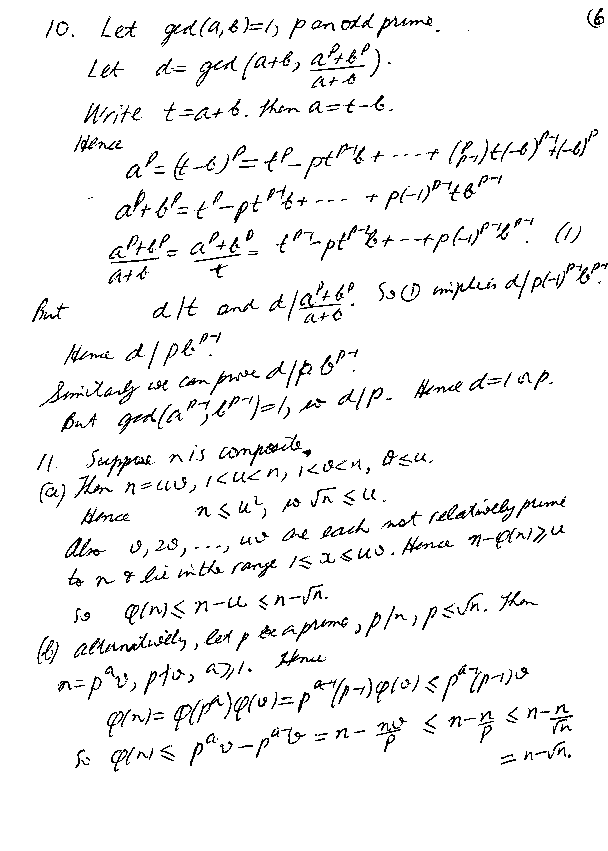 (6
10. Let gcd(a,b)=1, p an odd prime.
Let d = gcd(a+b, (a^p+b^p)/(a+b)).
Write t=a+b. Then a=t-b.
Hence
a^p = (t-b)^p = t^p - pt^{p-1}b + ... + (p p-1)t(-b)^{p-1} + (-b)^p
a^p+b^p = t^p - pt^{p-1}b + ... + p(-1)^{p-1}tb^{p-1}
(a^p+b^p)/(a+b) = (a^p+b^p)/t = t^{p-1} - pt^{p-2}b + ... + p(-1)^{p-1}b^{p-1}. (1)
But d|t and d|(a^p+b^p)/(a+b). So (1) implies d|p(-1)^{p-1}b^{p-1}
Hence d|pb^{p-1}.
Similarly we can prove d|p^{p-1}.
But gcd(a^{p-1}, b^{p-1})=1, so d|p. Hence d=1 or p.
11. Suppose n is composite.
(a) Then n=uv, 1<u<n, 1<v<n, v≤u.
Hence n≤u², so √n≤u.
Also v, 2v, ..., uv are each not relatively prime
to n & lie in the range 1≤x≤uv. Hence n-φ(n)≥u
So φ(n)≤n-u≤n-√n.
(b) Alternatively, let p be a prime, p|n, p≤√n. Then
n=p^a v, p∤v, a≥1. Hence
φ(n)=φ(p^a)φ(v)=p^{a-1}(p-1)φ(v)≤p^{a-1}(p-1)v
So φ(n)≤p^a v-p^{a-1}v = n- /p ≤ n-n/p ≤ n-n/√n
= n-√n.